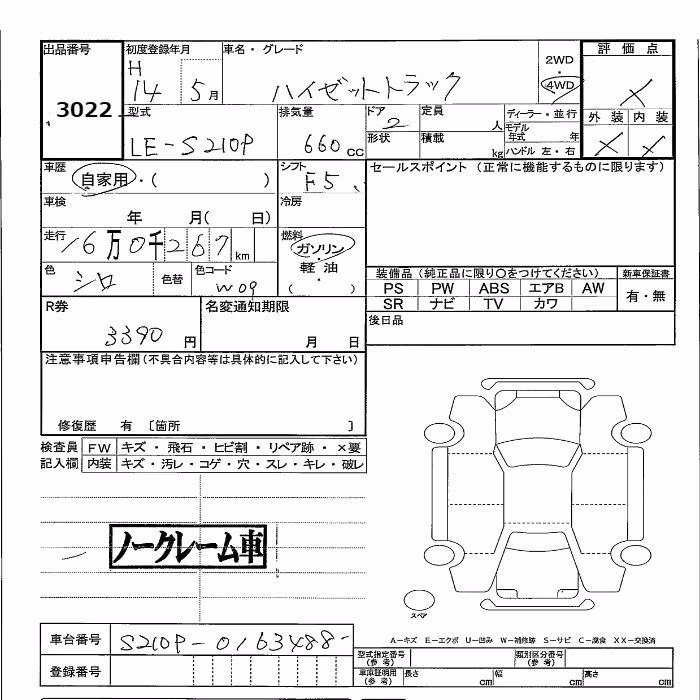 出品番号
3022
初度登録年月
H
14 5月
車名・グレード
ハイゼットトラック
2WD
・
4WD
評価点
×
型式
LE-S210P
排気量
660cc
ドア
2
形状
定員
人
積載
kg
ディーラー・並行
モデル年式 年
ハンドル 左・右
外装 内装
× ×
車歴
自家用・( )
シフト
F5
セールスポイント (正常に機能するものに限ります)
車検
年 月( 日)
冷房
走行
16万0千267km
燃料
ガソリン
・
軽油
・
( )
色
シロ
色替
色コード
W09
装備品 (純正品に限り○をつけてください)
PS PW ABS エアB AW
SR ナビ TV カワ
新車保証書
有・無
R券
3390円
名変通知期限
月 日
後日品
注意事項申告欄(不具合内容等は具体的に記入して下さい)
修復歴 有 〔箇所 〕
検査員記入欄
FW キズ・飛石・ヒビ割・リペア跡・×要
内装 キズ・汚レ・コゲ・穴・スレ・キレ・破レ
ノークレーム車
スペア
A-キズ E-エクボ U-凹み W-補修跡 S-サビ C-腐食 XX-交換済
車台番号
S210P-0163488-
登録番号
型式指定番号(参考)
類別区分番号(参考)
車庫証明用(参考)
長さ cm 幅 cm 高さ cm